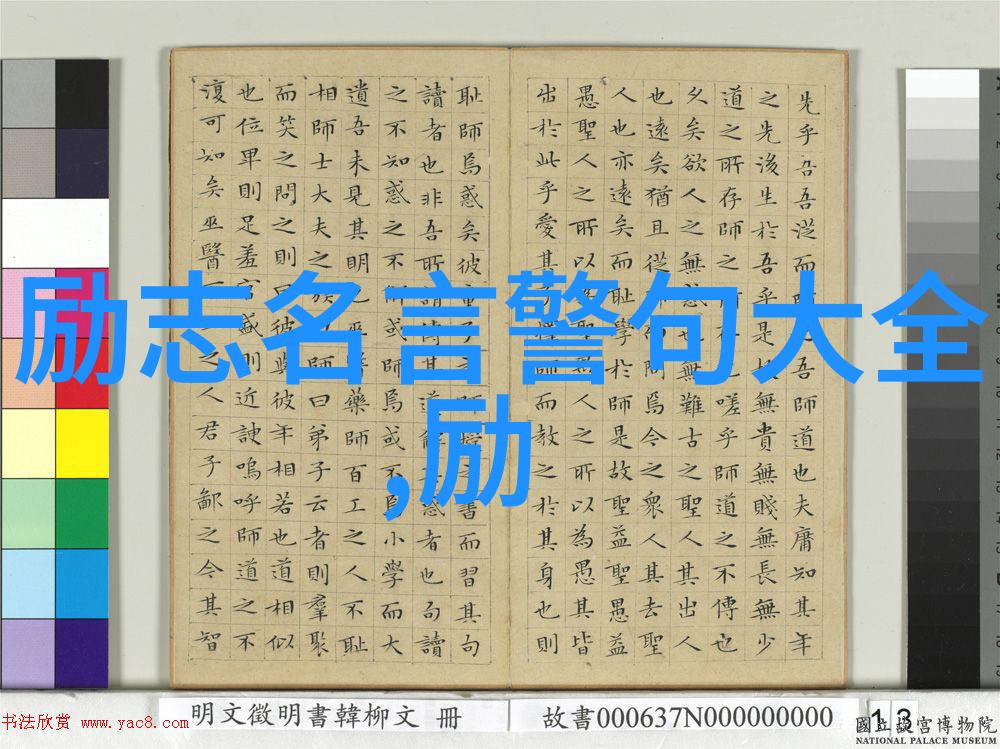 励志名言警句大全
,励
先乎吾吾從而師之吾師道也夫庸知其年
之先後生於吾乎是故無貴無賤無長無少
道之所存師之所存也嗟乎師道之不傳也
乆矣欲人之無惑也無難古之聖人其出人
也遠矣猶且從師而問焉今之衆人其去聖
人也亦遠矣而恥學於師是故聖益聖愚益
愚聖人之所以為聖愚人之所以為愚其皆
出於此乎愛其子擇師而教之於其身也則
恥師焉惑矣彼童子之師授之書而習其句
讀者也非吾所謂傳其道解其惑者也句讀
之不知惑之不解或師焉或不焉小學而大
遺吾未見其明也巫醫藥師百工之人不恥
相師士大夫之族曰師曰弟子云者則羣聚
而笑之問之則曰彼與彼年相若也道相似
也位卑則足羞官盛則近諛嗚呼師道之不
復可知矣巫醫之人君子鄙之今其智
明文徵明書韓柳文 冊
故書000637N000000000
13
书法欣赏 www.yac8.com
國立故宮博物院
NATIONAL PALACE MUSEUM